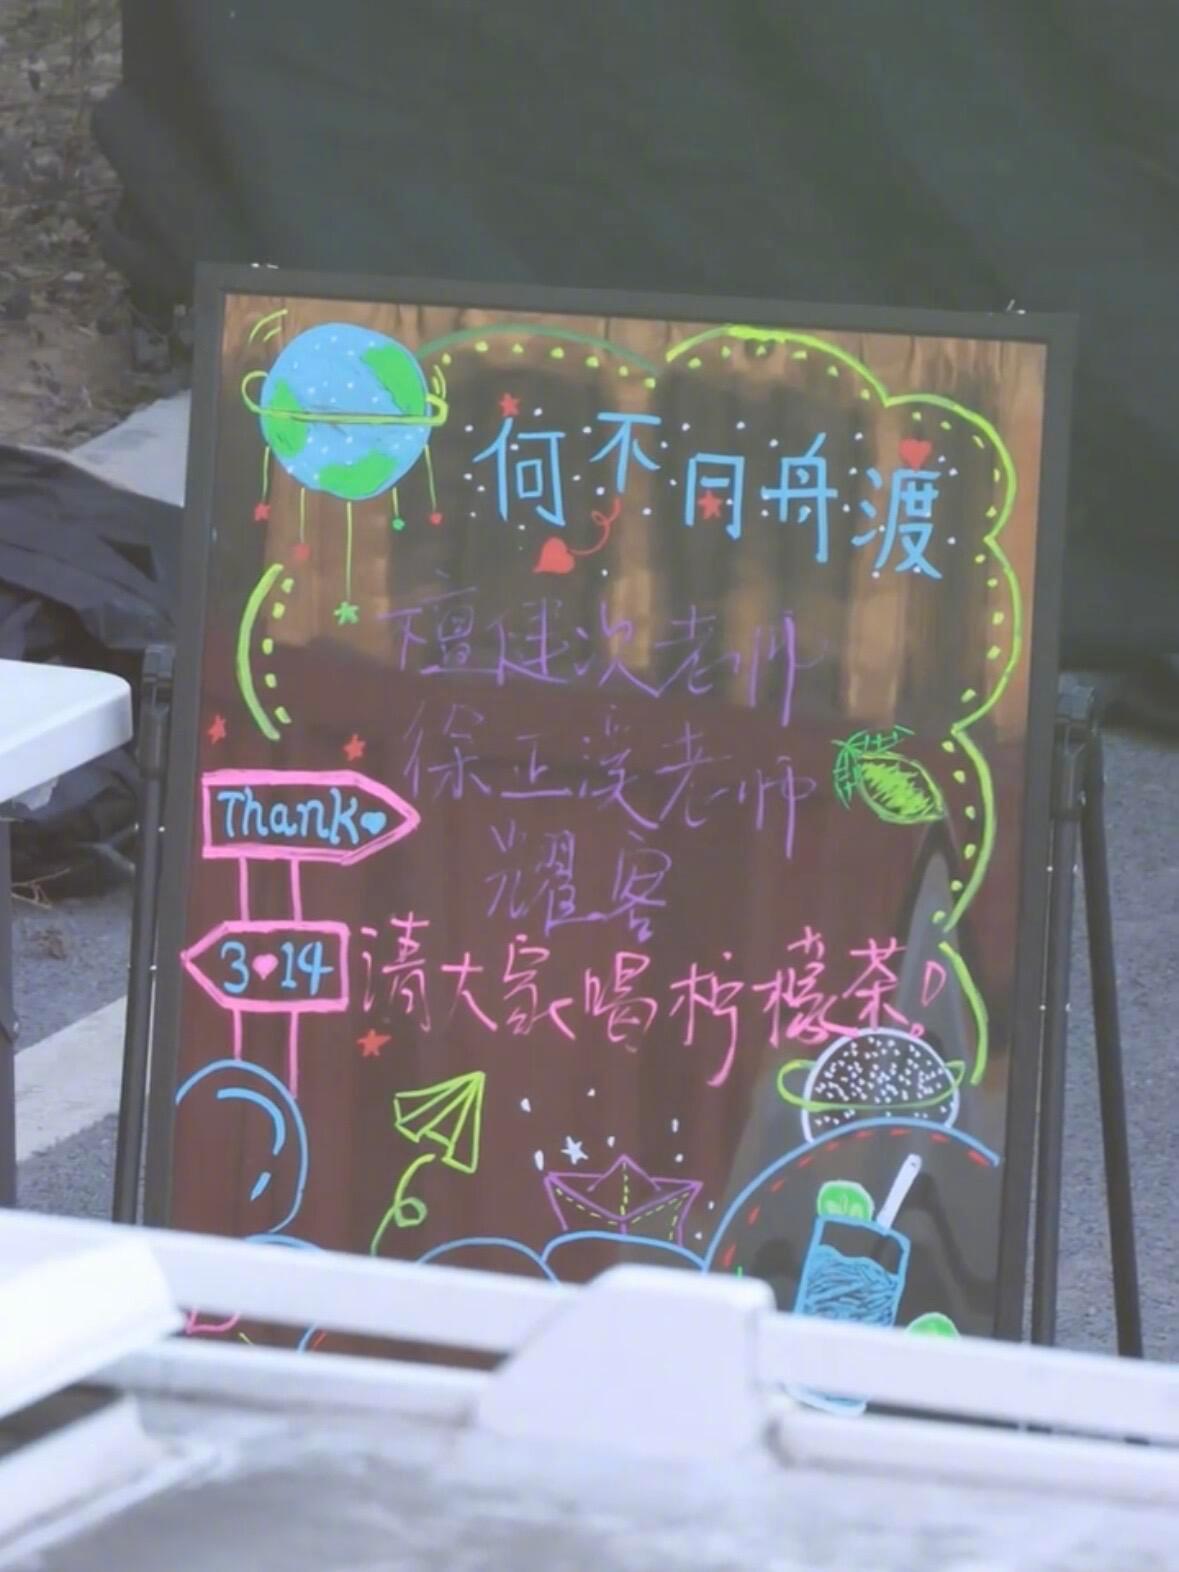 何不同舟渡
檀健次老师
徐正溪老师
Thank
耀客
3 14
请大家喝柠檬茶！